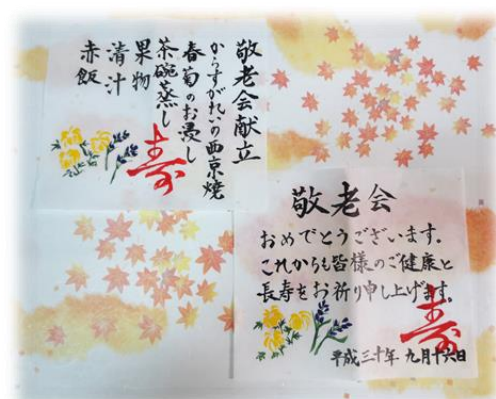 敬老会献立
からすがれいの西京焼
春菊のお浸し
茶碗蒸し
果物
清汁
赤飯
寿
敬老会
おめでとうございます。
これからも皆様のご健康と
長寿をお祈り申し上げます。
寿
平成三十年 九月十六日